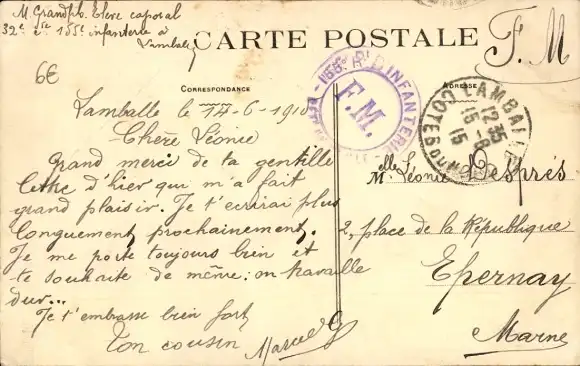 M. Grandpb. Elève caporal
32e Cie 155e infanterie à
Lamballe
CARTE POSTALE
F. M
6€
CORRESPONDANCE
ADRESSE
155e Rt D'INFANTERIE
F.M.
LAMBALLE
12 35
15-6
15
COTES DU NORD
Lamballe le 14-6-191
Chère Léonie
Grand merci de ta gentille
lettre d'hier qui m'a fait
grand plaisir. Je t'écrirai plus
longuement prochainement.
Je me porte toujours bien et
te souhaite de même: on travaille
dur...
Je t'embrasse bien fort
Ton cousin Marcel
Melle Léonie Després
2, place de la République
Epernay
Marne